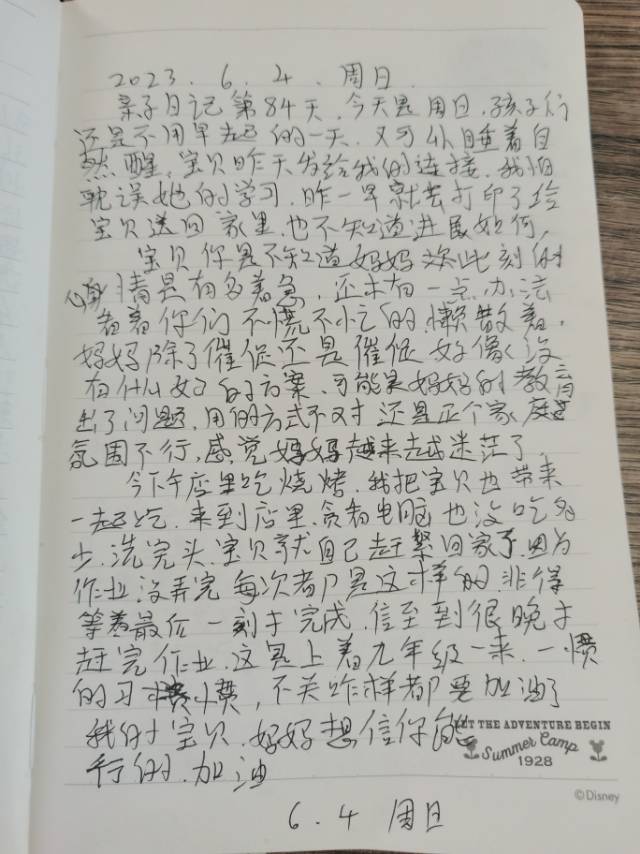 2023.6.4.周日.
亲子日记第84天.今天是周日.孩子们
还是不用早起的一天.又可以睡着自
然醒.宝贝昨天发给我的连接.我怕
耽误她的学习.昨一早就去打印了给
宝贝送回家里.也不知道进展如何,
宝贝你是不知道妈妈此刻的
心情是有多着急,还未有一点办法
看着你们不慌不忙的懒散着.
妈妈除了催促还是催促好像没
有什么好的方案.可能是妈妈的教育
出了问题.用的方式不对还是正个家庭
氛围不行,感觉妈妈越来越迷茫了.
今下午店里吃烧烤.我把宝贝也带来
一起吃.来到店里.贪着电脑也没吃多
少.洗完头.宝贝就自己赶紧回家了.因为
作业没弄完每次都是这样的.非得
等着最后一刻才完成.信至到很晚才
赶完作业.这是上着九年级一来.一惯
的习惯,不关咋样都要加油了
我的宝贝.妈妈想信你能
行的.加油
LET THE ADVENTURE BEGIN
Summer Camp
1928
©Disney
6.4 周日